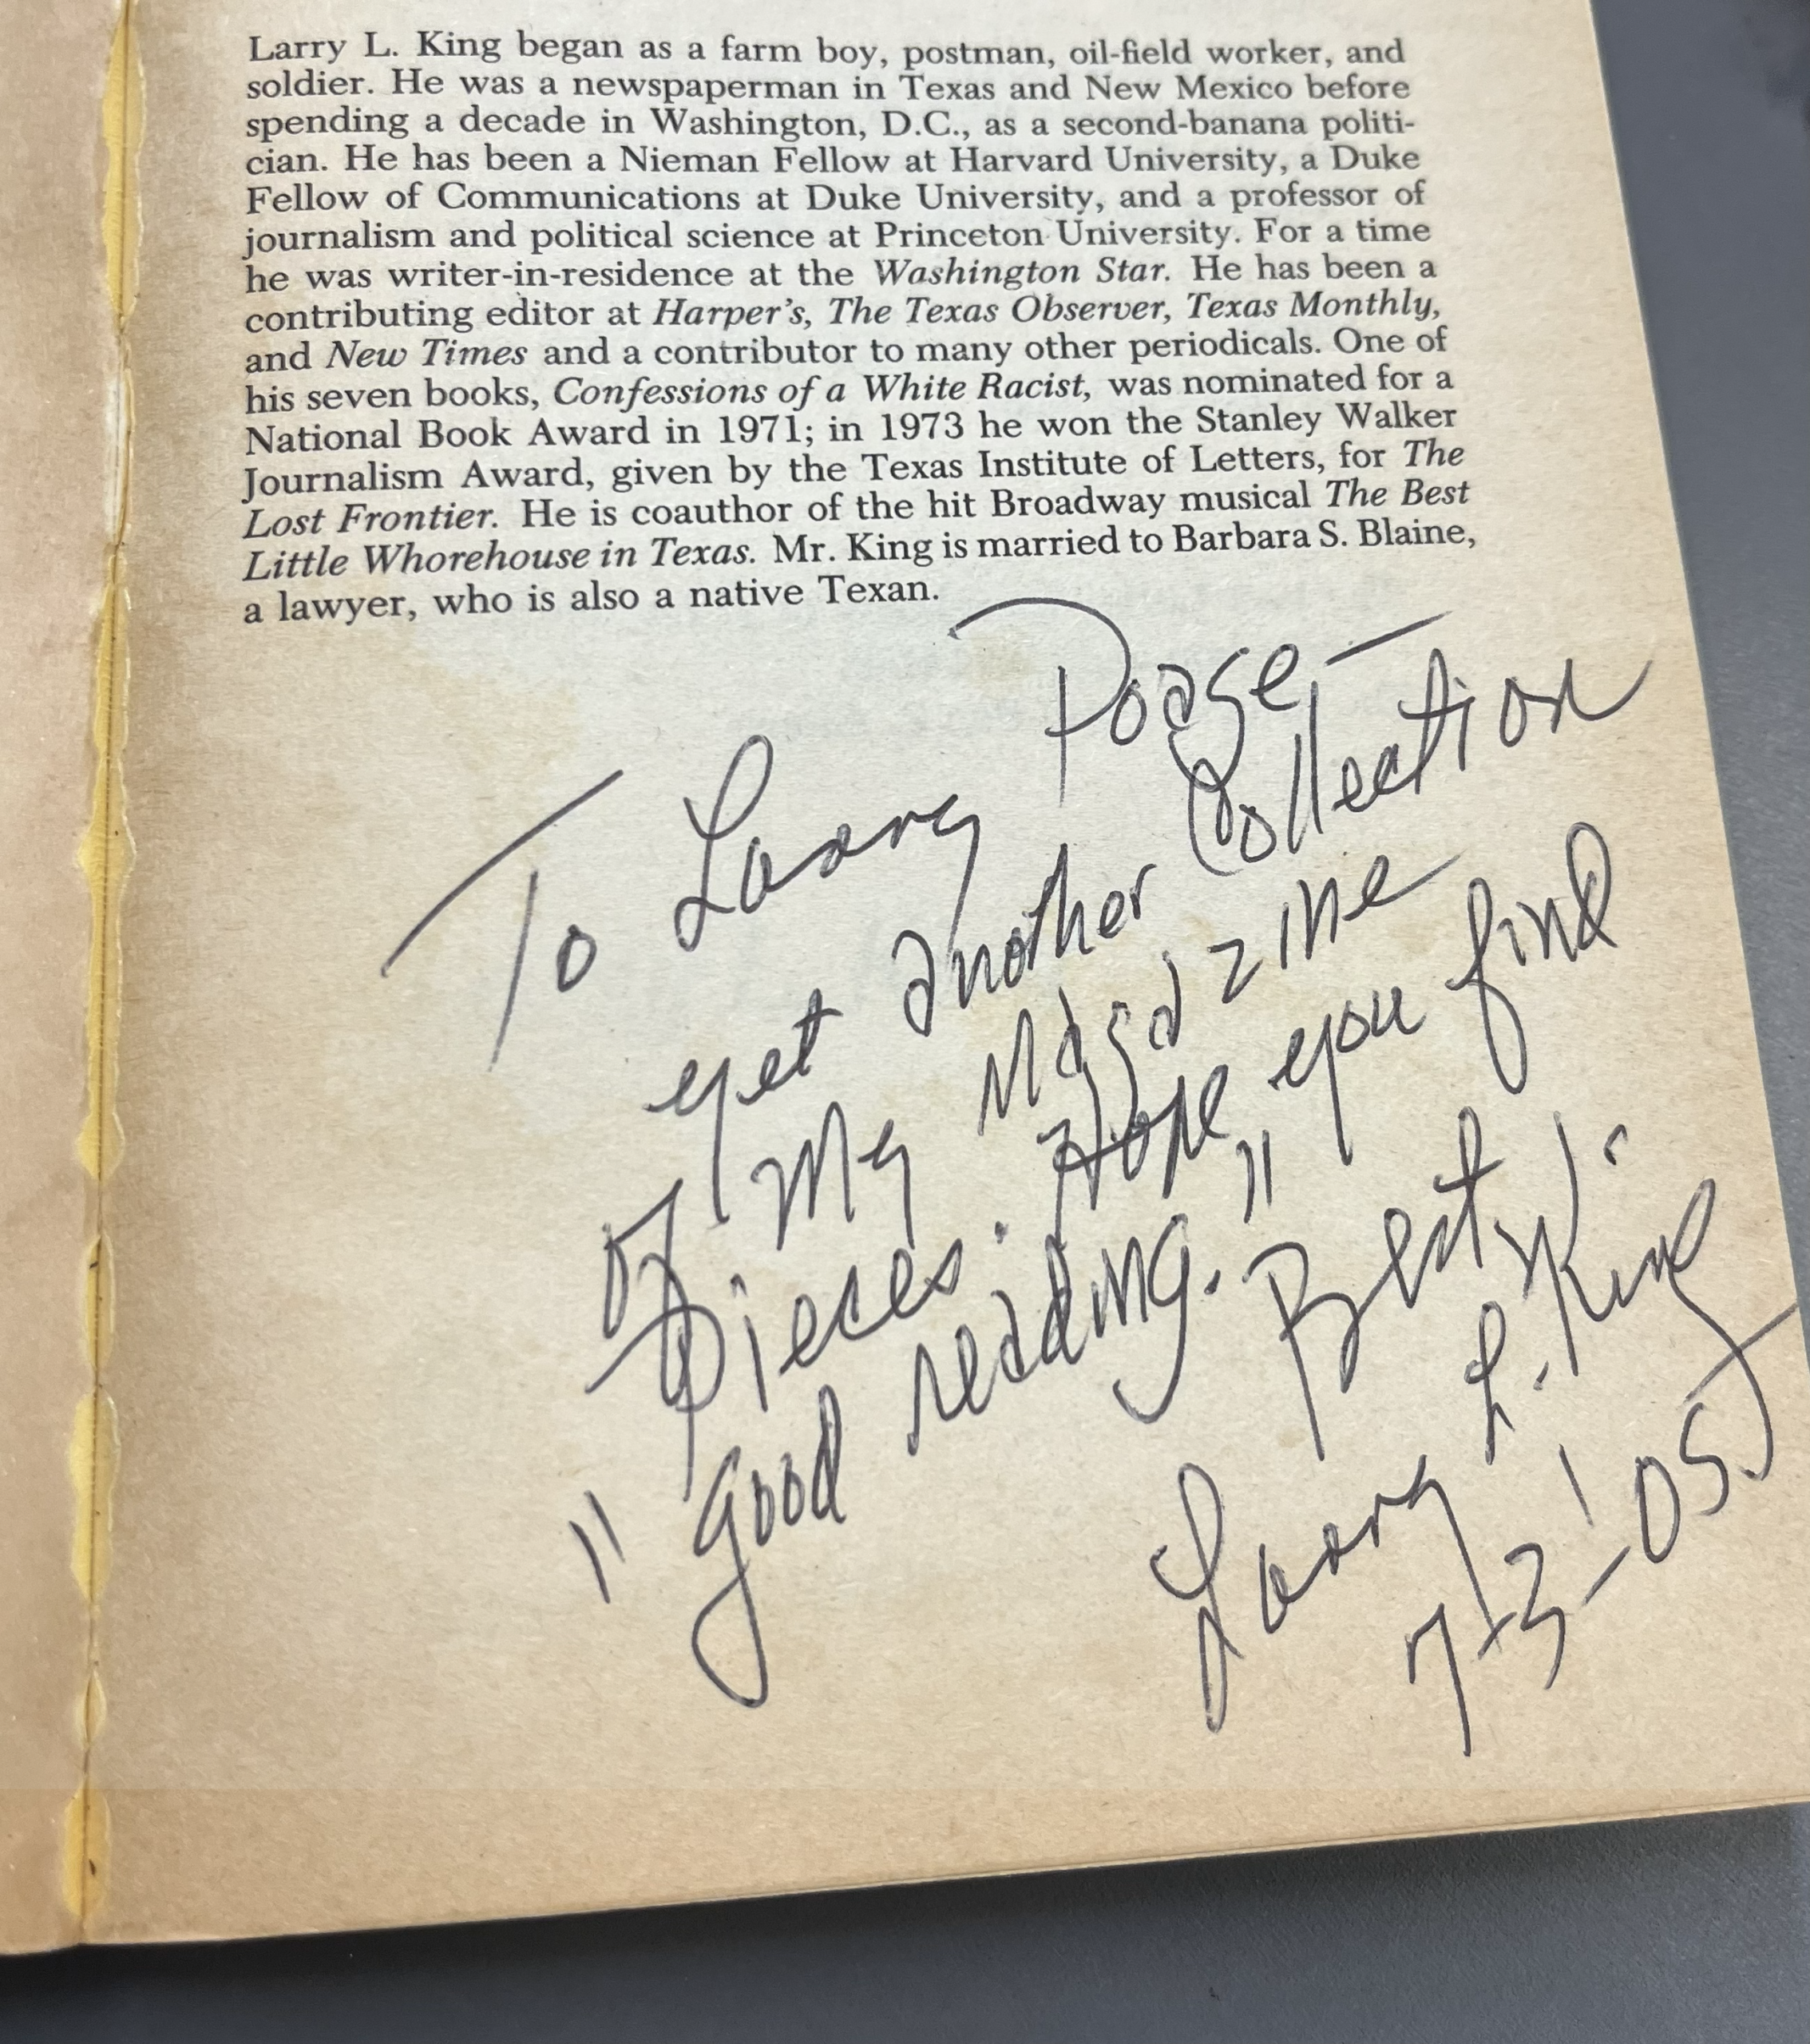 Larry L. King began as a farm boy, postman, oil-field worker, and
soldier. He was a newspaperman in Texas and New Mexico before
spending a decade in Washington, D.C., as a second-banana politi-
cian. He has been a Nieman Fellow at Harvard University, a Duke
Fellow of Communications at Duke University, and a professor of
journalism and political science at Princeton University. For a time
he was writer-in-residence at the Washington Star. He has been a
contributing editor at Harper's, The Texas Observer, Texas Monthly,
and New Times and a contributor to many other periodicals. One of
his seven books, Confessions of a White Racist, was nominated for a
National Book Award in 1971; in 1973 he won the Stanley Walker
Journalism Award, given by the Texas Institute of Letters, for The
Lost Frontier. He is coauthor of the hit Broadway musical The Best
Little Whorehouse in Texas. Mr. King is married to Barbara S. Blaine,
a lawyer, who is also a native Texan.
To Larry Poage—
yet another Collection
of my Magazine
Pieces. Hope you find
"good reading."
Best,
Larry L. King
7-3-05